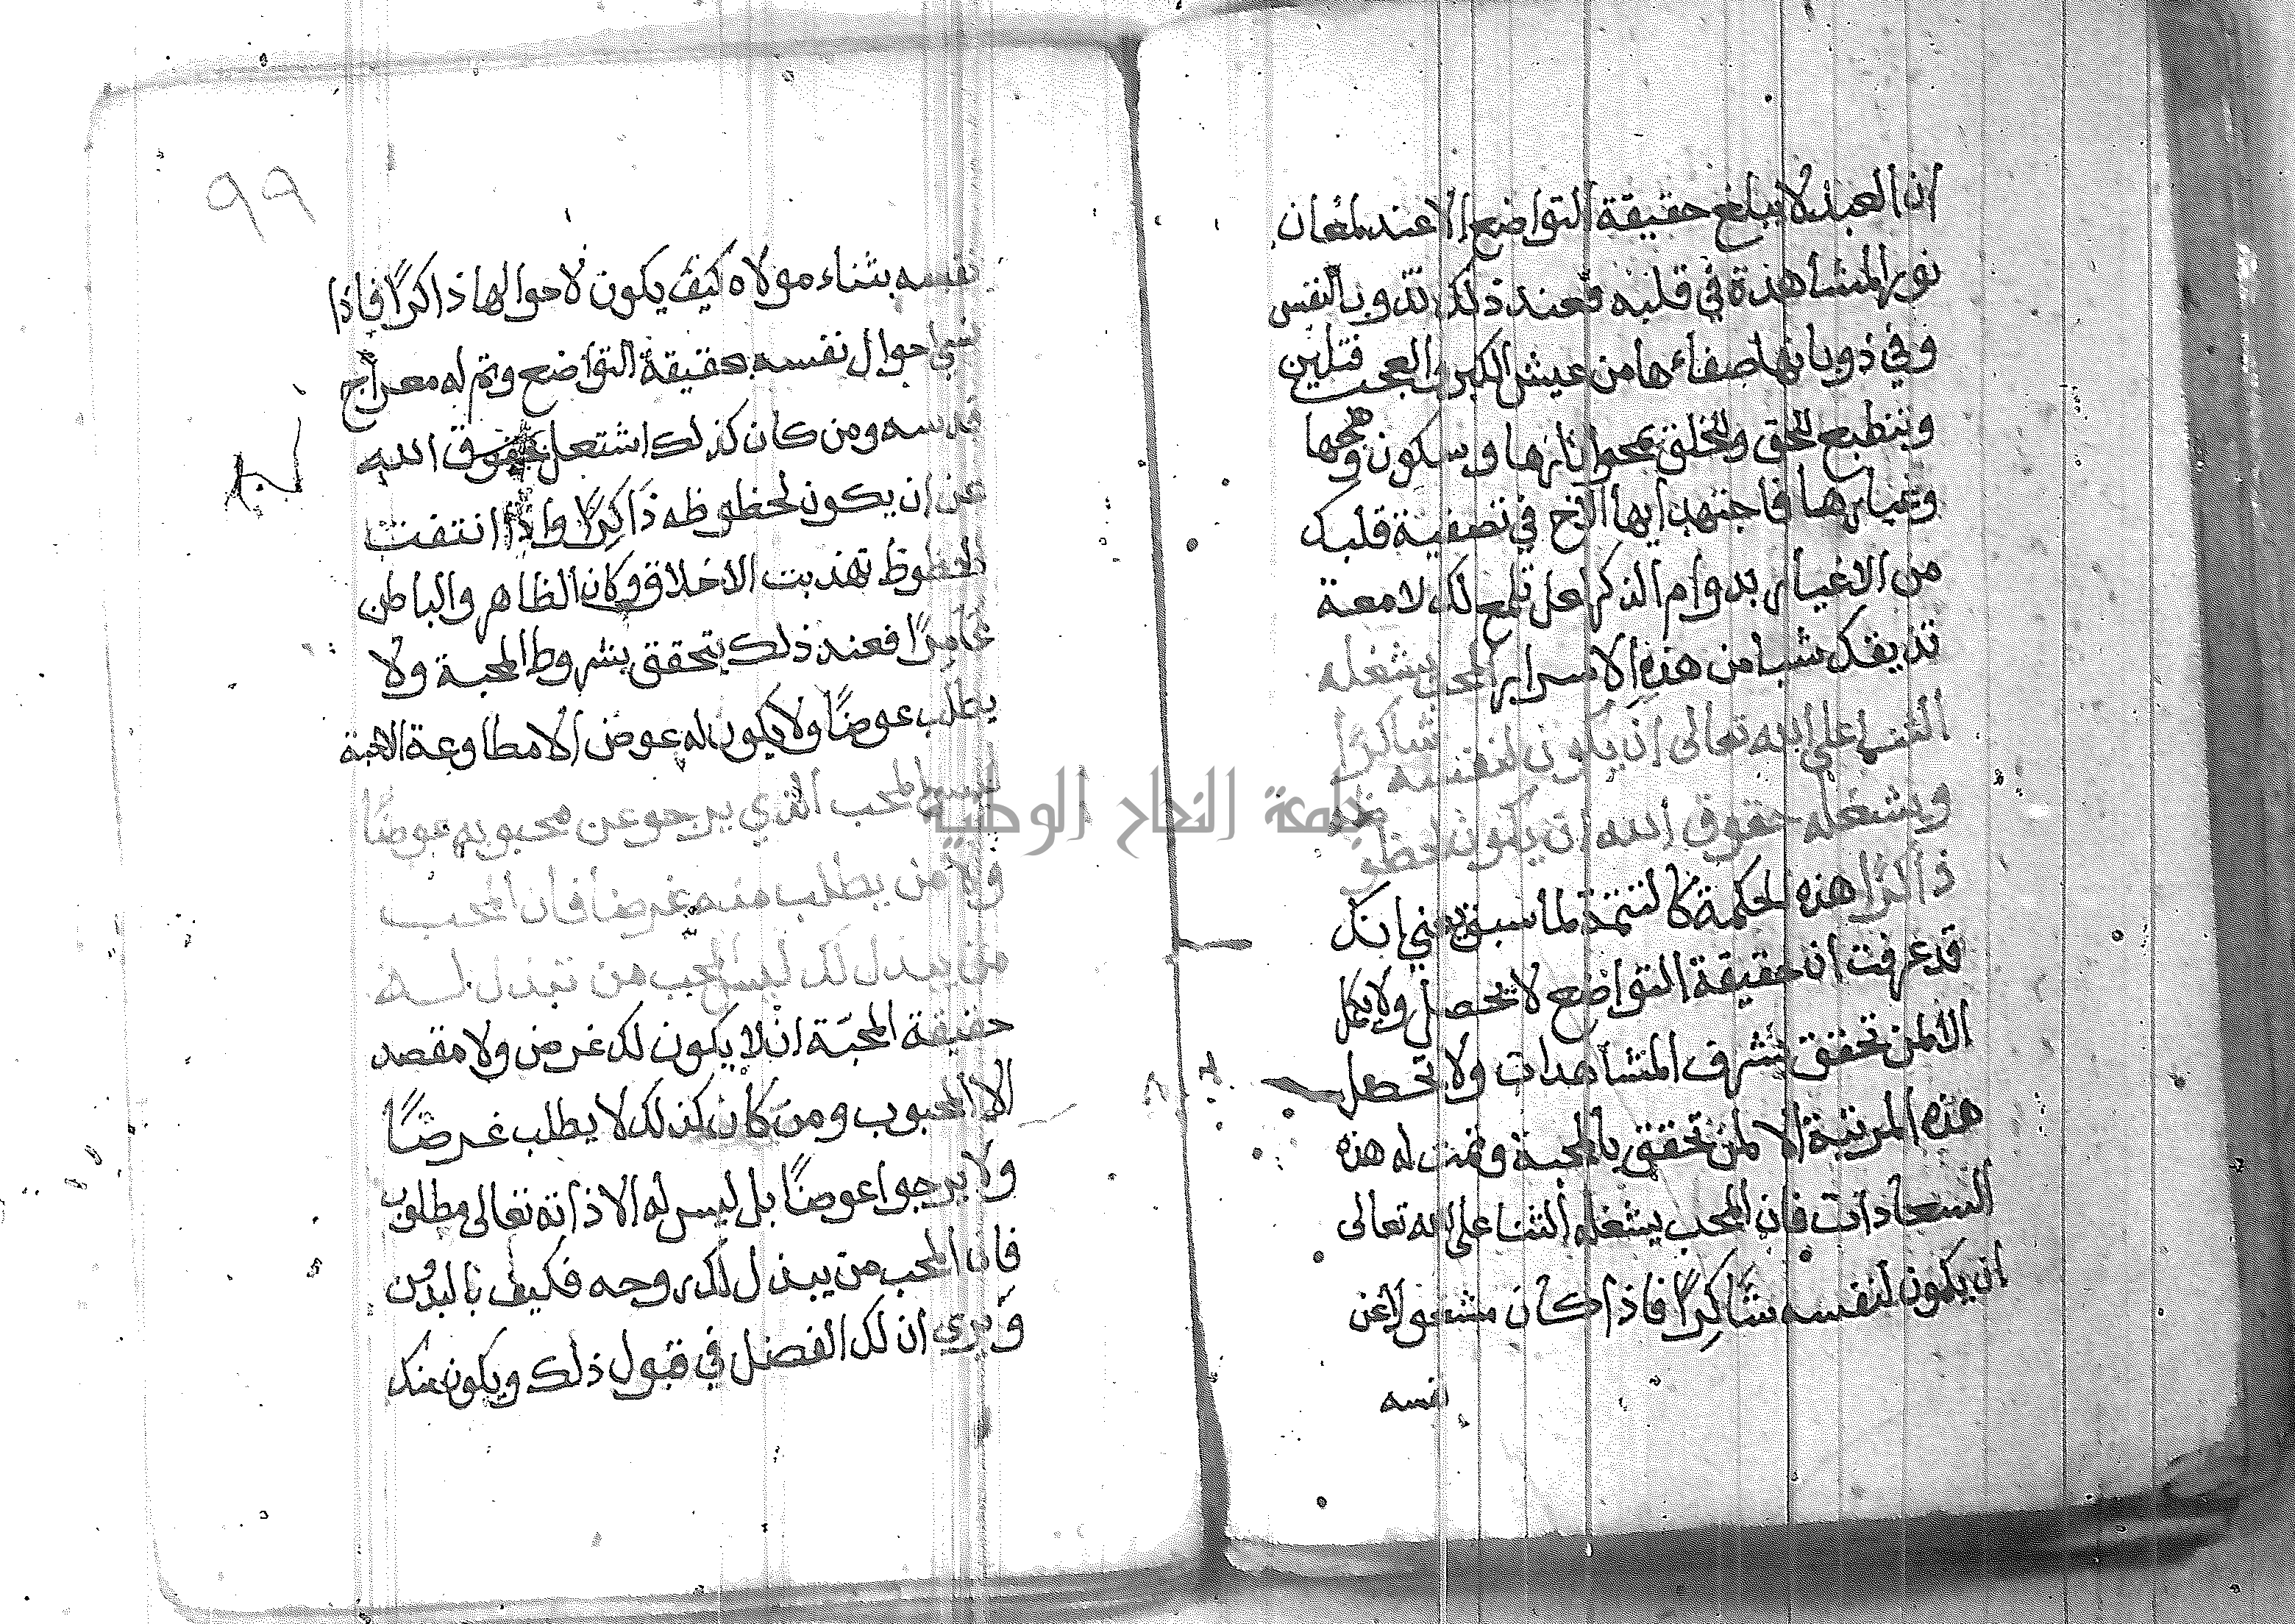 ان العبد لا يبلغ حقيقة التواضع الا عند لمعان
نور المشاهدة في قلبه فعند ذلك تذوب النفس
وفي ذوبانها صفاءها من غيش الكبر والعجب فتلين
وتنطبع للحق والخلق بمحو اثارها وسكون وهجها
وغبارها فاجتهد ايها الاخ في تصفية قلبك
من الاغيار بدوام الذكر لعل تلمع لك لامعة
تذيقك شيا من هذه الاسرار المحب يشغله
الثنا على الله تعالى ان يكون لنفسه شاكرا
ويشغله حقوق الله ان يكون لحظوظه
ذاكرا هذه الحكمة كالتتمة لما سبق يعني انك
قد عرفت ان حقيقة التواضع لا يحصل ولا يكمل
الا لمن تحقق بشرف المشاهدات ولا تحصل
هذه المرتبة الا لمن تحقق بالمحبة وتمت له هذه
السعادات فان المحب يشغله الثنا على الله تعالى
ان يكون لنفسه شاكرًا فاذا كان مشغولا عن
نفسه
٩٩
نفسه بثناء مولاه كيف يكون لاحوالها ذاكرًا فاذا
نسي احوال نفسه بحقيقة التواضع وتم له معراج
قدسه ومن كان كذلك اشتغل بحقوق الله
عن ان يكون لحظوظه ذَاكِرًا واذا انتفت
الحظوظ تهذبت الاخلاق وكان الظاهر والباطن
عَامِرًا فعند ذلك يتحقق بشروط المحبة ولا
يطلب عوضًا ولا يكون له عوض الا مطاوعة الاحبة
ليس المحب الذي يرجو عن محبوبه عوضًا
ولا من يطلب منه غرضا فان المحب
من يبذل لك ليس المحب من تبذل له
حقيقة المحبة ان لا يكون لك غرض ولا مقصد
الا المحبوب ومن كان كذلك لا يطلب غرضًا
ولا يرجوا عوضًا بل ليس له الا ذاته تعالى مطلوب
فان المحب من يبذل لك روحه فكيف بالبدن
ويري ان لك الفضل في قبول ذلك ويكون منك
جامعة النجاح الوطنية